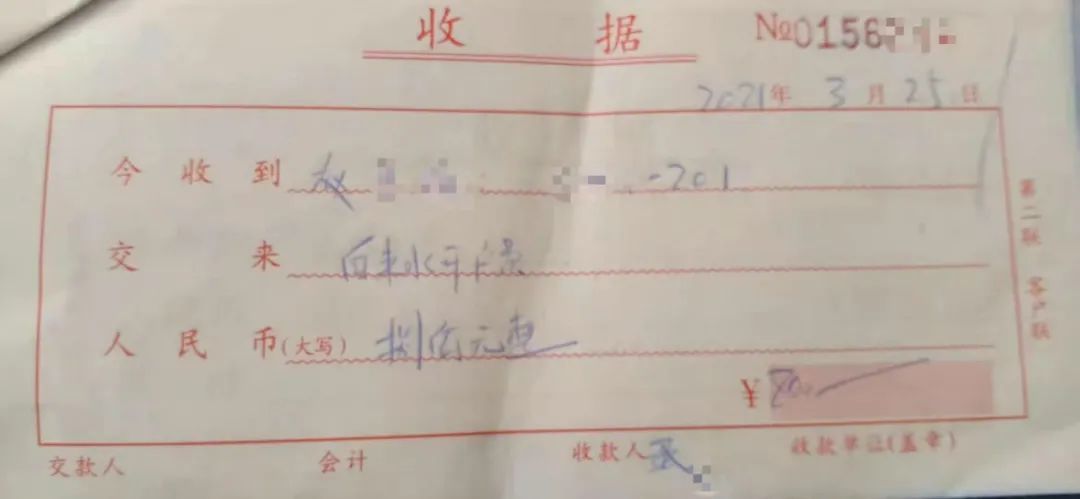 收 据 №0156
2021年 3月 25日
今收到 赵 -201
交来 自来水开户费
人民币(大写) 捌佰元整
¥ 800
交款人 会计 收款人 收款单位(盖章)
第二联 客户联